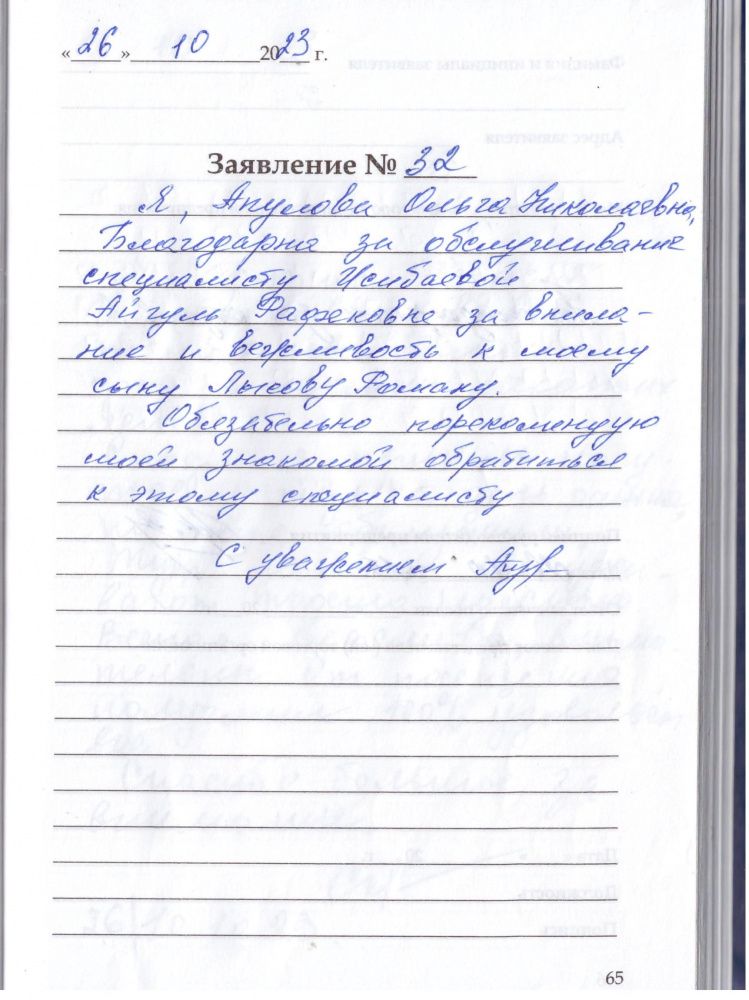 «26» 10 2023 г.
Заявление № 32
Я, Акулова Ольга Николаевна,
Благодарна за обслуживание
специалисту Исибаевой
Айгуль Рафековне за внима-
ние и вежливость к моему
сыну Лысову Роману.
Обязательно порекомендую
моей знакомой обратиться
к этому специалисту
С уважением
65